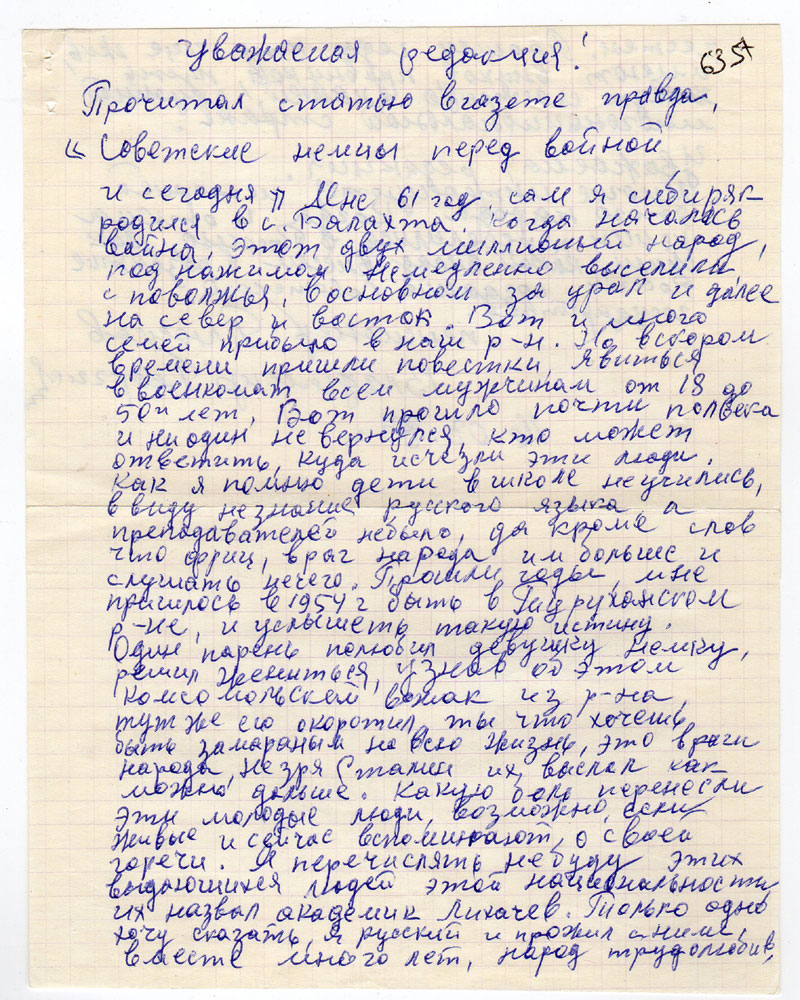 Уважаемая редакция!
6357
Прочитал статью в газете правда,
« Советские немцы перед войной
и сегодня " Мне 61 год, сам я сибиряк
родился в с. Балахта. Когда началась
война, этот двух миллионый народ,
под нажимом немедленно выселили,
с поволжья, в основном за урал и далее
на север и восток. Вот и много
семей прибыло в наш р-н. На вскором
времени пришли повестки, явиться
в военкомат всем мужчинам от 18 до
50и лет, Вот прошло почти полвека
и ниодин не вернулся, кто может
ответить, куда исчезли эти люди.
Как я помню дети в школе неучились,
ввиду незнание русского языка, а
преподавателей небыло, да кроме слов
что фриц, враг народа им больше и
слушать нечего. Прошли годы, мне
пришлось в 1954 г быть в Туруханском
р-не, и услышеть такую истину.
Один парень полюбил девушку немку,
решил жениться, узнав об этом
комсомольской вожак из р-на,
тут же его окоротил, ты что хочешь
быть замараным на всю жизнь, это враги
народа, незря Сталин их выслал как
можно дальше. Какую боль перенесли
эти молодые люди, возможно, если
живые и сейчас вспоминают, о своей
горечи. Я перечислять небуду этих
выдающихся людей этой национальности
их назвал академик Лихачев. Только одно
хочу сказать, я русский и прожил с ними,
вместе много лет, народ трудолюбив,